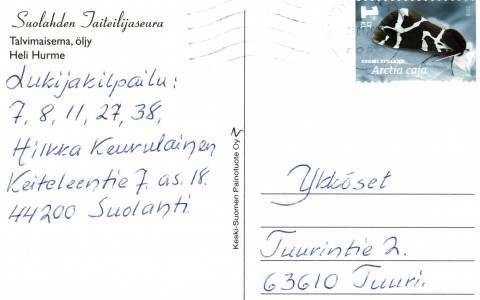 Suolahden Taiteilijaseura
Talvimaisema, öljy
Heli Hurme
Lukijakilpailu:
7, 8, 11, 27, 38,
Hilkka Keurulainen
Keiteleentie 7. as. 18.
44200 Suolahti.
Keski-Suomen Painotuote Oy
1
SUOMI FINLAND
Arctia caja
Ykköset
Tuurintie 2.
63610 Tuuri.